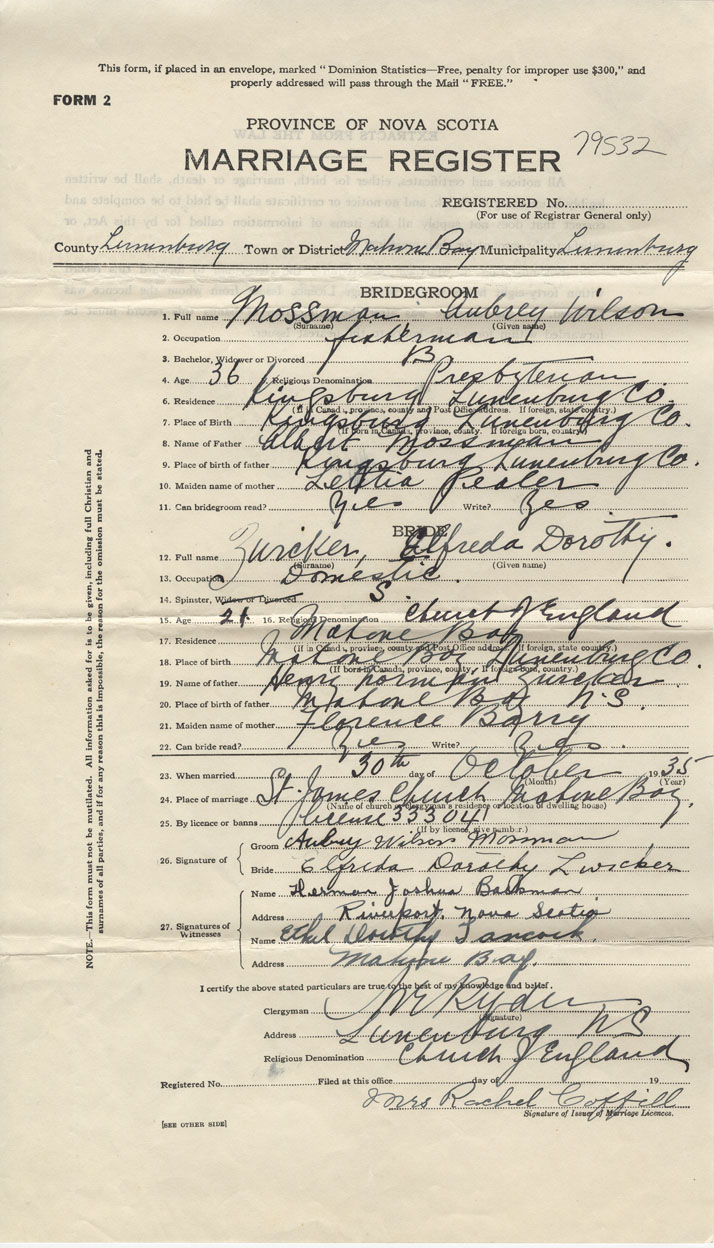 This form, if placed in an envelope, marked "Dominion Statistics—Free, penalty for improper use $300," and
properly addressed will pass through the Mail "FREE."
FORM 2
PROVINCE OF NOVA SCOTIA
MARRIAGE REGISTER 79532
REGISTERED No.
(For use of Registrar General only)
County Lunenburg Town or District Mahone Bay Municipality Lunenburg
BRIDEGROOM
1. Full name Mossman Aubrey Wilson
(Surname) (Given name)
2. Occupation fisherman
3. Bachelor, Widower or Divorced B
4. Age 36 5. Religious Denomination Presbyterian
6. Residence Kingsburg Lunenburg Co.
(If in Canada, province, county and Post Office address. If foreign, state country.)
7. Place of Birth Kingsburg Lunenburg Co.
(If born in Canada, province, county. If foreign born, country)
8. Name of Father Albert Mossman
9. Place of birth of father Kingsburg Lunenburg Co.
10. Maiden name of mother Letitia
11. Can bridegroom read? Yes Write? Yes.
BRIDE
12. Full name Zwicker, Elfreda Dorothy.
(Surname) (Given name)
13. Occupation Domestic
14. Spinster, Widow or Divorced S
15. Age 21 16. Religious Denomination Church of England
17. Residence Mahone Bay
(If in Canada, province, county and Post Office address. If foreign, state country.)
18. Place of birth Mahone Bay Lunenburg Co.
(If born in Canada, province, county. If foreign born, country)
19. Name of father Henry Norman Zwicker
20. Place of birth of father Mahone Bay N.S.
21. Maiden name of mother Florence Barry
22. Can bride read? Yes Write? Yes.
23. When married 30th day of October 1935
(Month) (Year)
24. Place of marriage St. James Church Mahone Bay.
(Name of church or clergyman's residence or location of dwelling house)
25. By licence or banns license 333041
(If by licence, give number.)
26. Signature of Groom Aubrey Wilson Mossman
Bride Elfreda Dorothy Zwicker
27. Signatures of Witnesses Name Herman Joshua
Address Riverport, Nova Scotia
Name Ethel Dorothy
Address Mahone Bay.
I certify the above stated particulars are true to the best of my knowledge and belief.
Clergyman Ryder
(Signature)
Address Lunenburg NS
Religious Denomination Church of England
Registered No. Filed at this office day of 19
Mrs Rachel Coffill
Signature of Issuer of Marriage Licences.
[SEE OTHER SIDE]
NOTE.—This form must not be mutilated. All information asked for is to be given, including full Christian and
surnames of all parties, and if for any reason this is impossible, the reason for the omission must be stated.